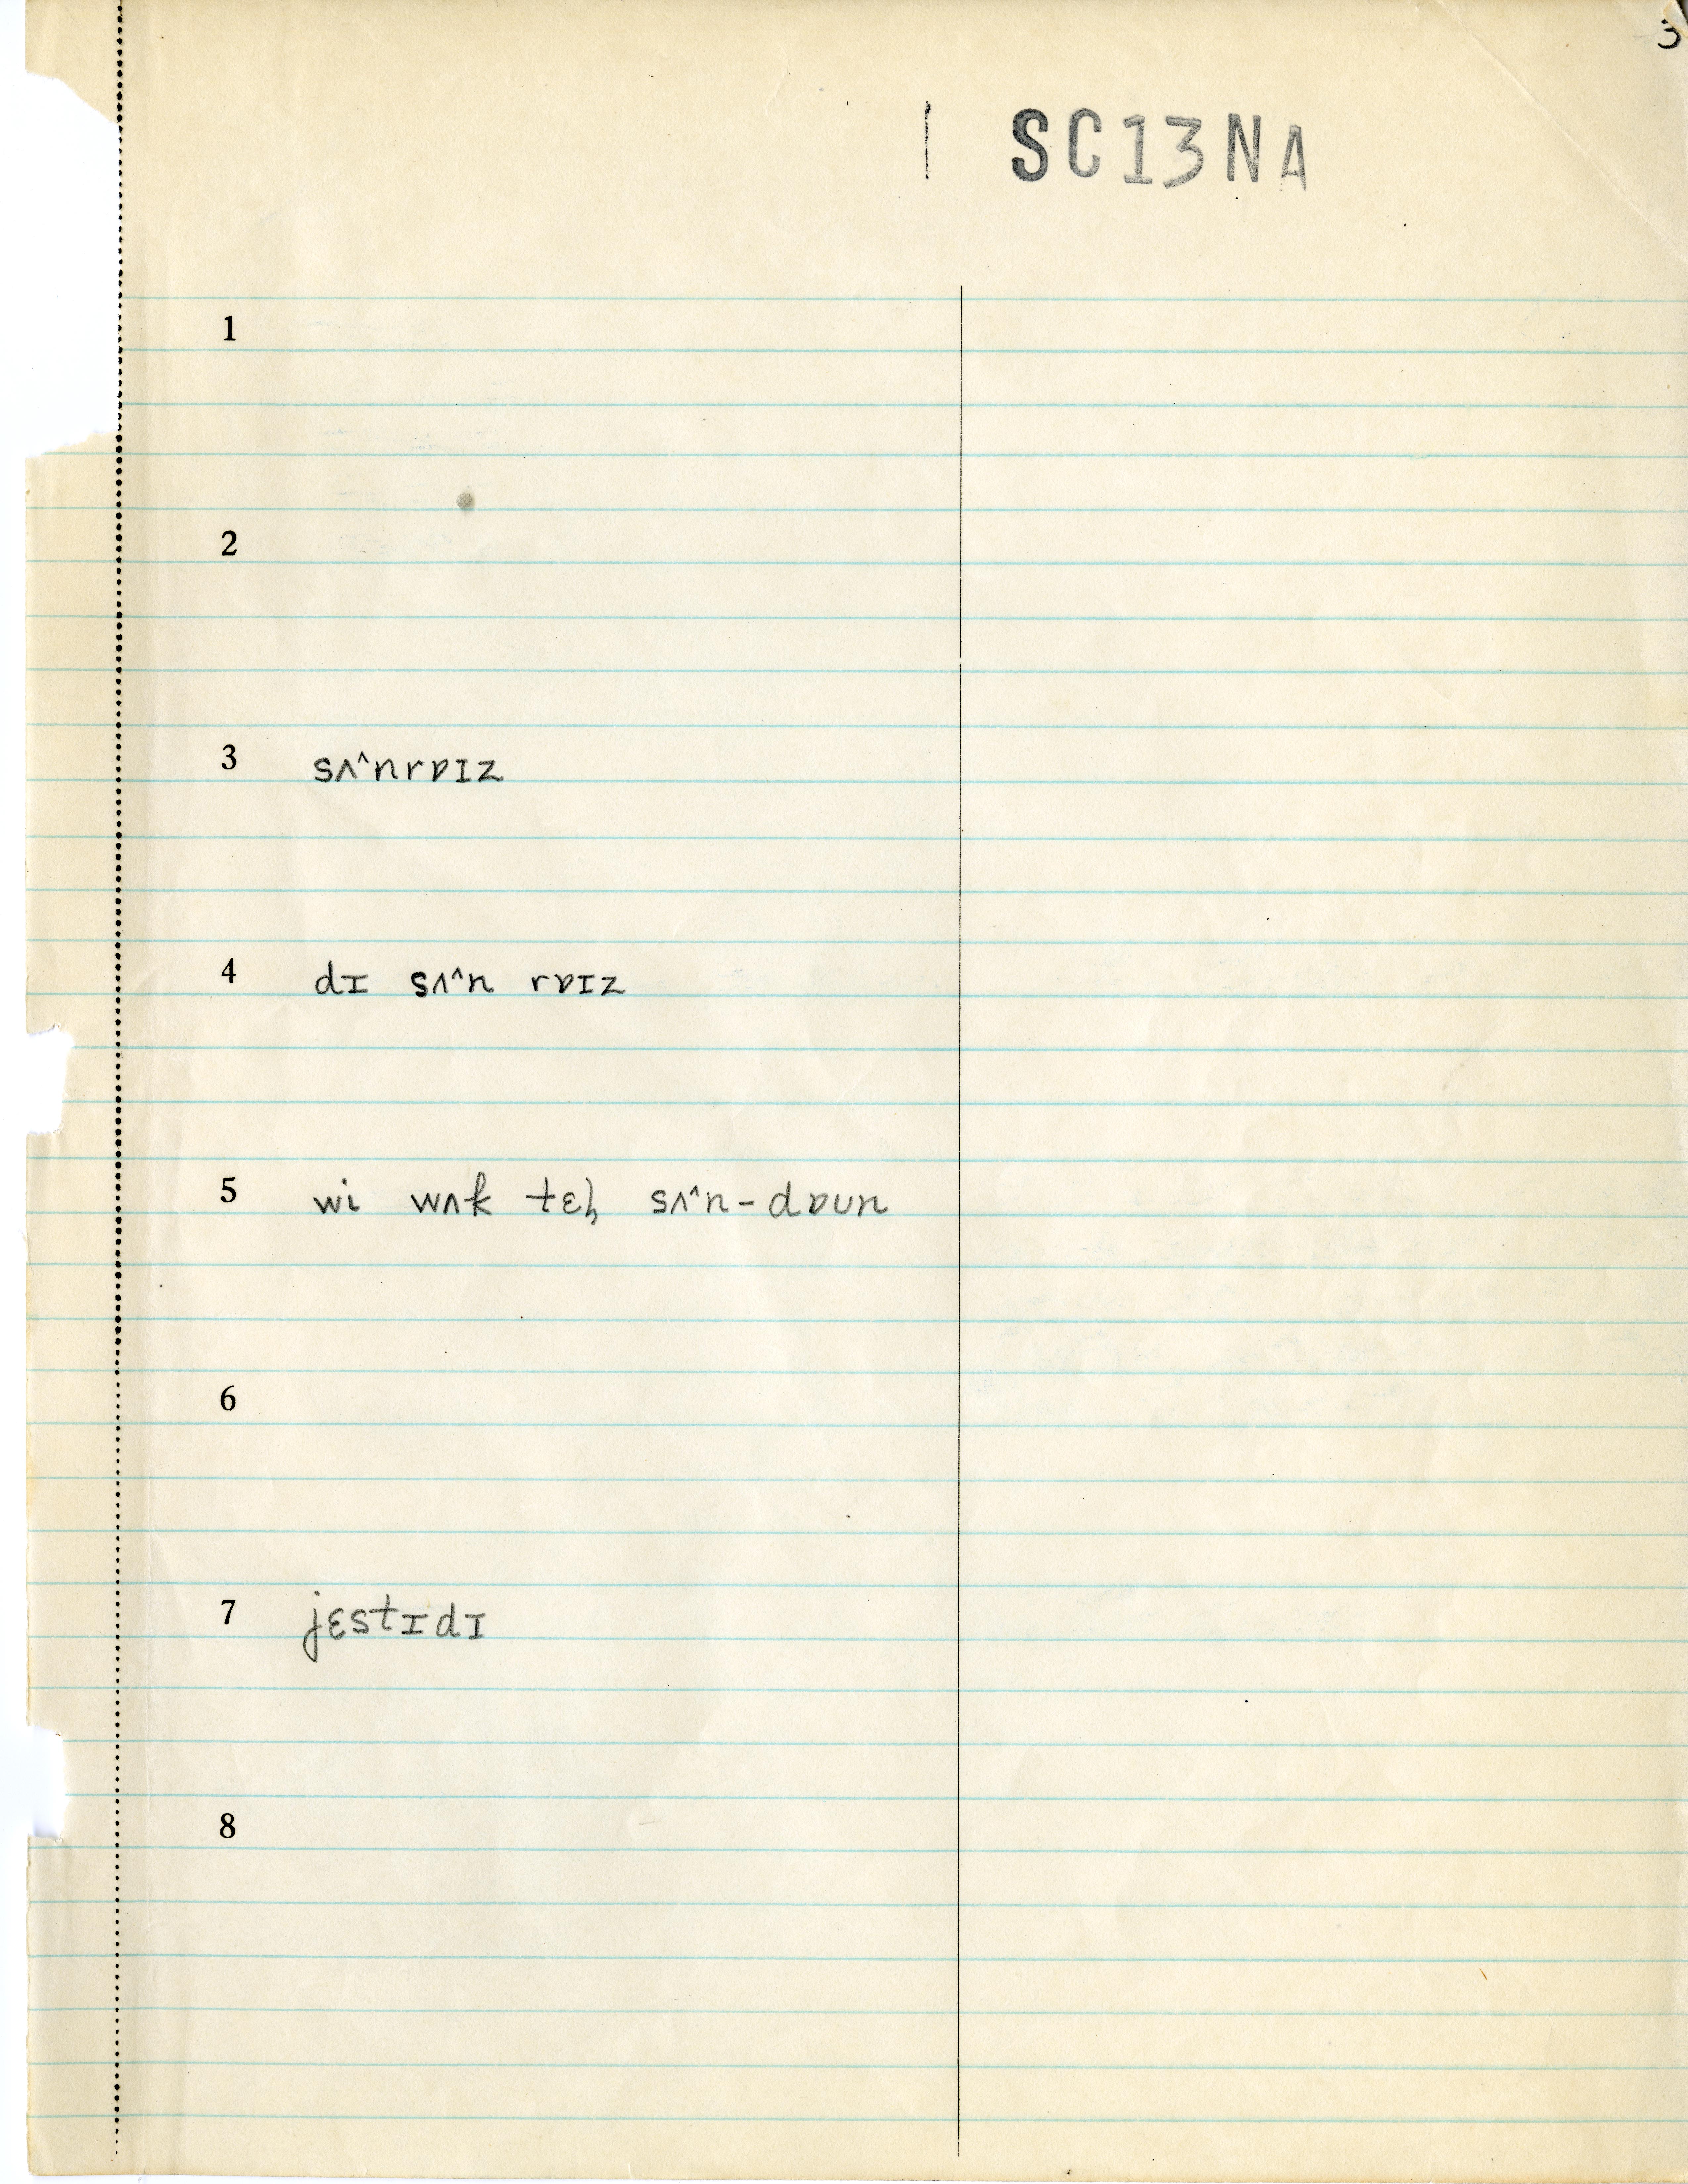 3
SC13NA
1
2
3 sʌ^nrɒɪz
4 dɪ sʌ^n rɒɪz
5 wi wʌk tɛl̩ sʌ^n-dɒʊn
6
7 jɛstɪdɪ
8